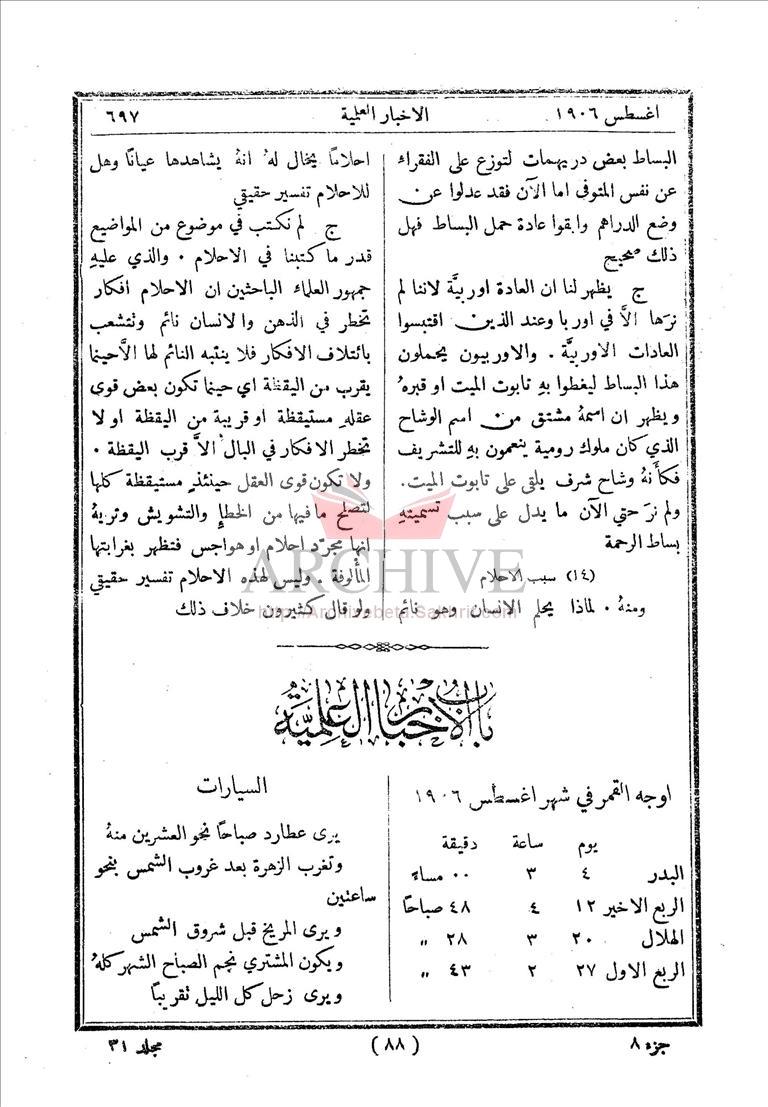 اغسطس ١٩٠٦ الاخبار العلمية ٦٩٧
البساط بعض دريهمات لتوزع على الفقراء
عن نفس المتوفى اما الآن فقد عدلوا عن
وضع الدراهم وابقوا عادة حمل البساط فهل
ذلك صحيح
ج يظهر لنا ان العادة اوربيَّة لاننا لم
نرَها الاَّ في اوربا وعند الذين اقتبسوا
العادات الاوربيَّة . والاوربيون يحملون
هذا البساط ليغطوا بهِ تابوت الميت او قبرهُ
ويظهر ان اسمهُ مشتق من اسم الوشاح
الذي كان ملوك رومية ينعمون بهِ للتشريف
فكأنهُ وشاح شرف يلقى على تابوت الميت.
ولم نرَ حتي الآن ما يدل على سبب تسميتهِ
بساط الرحمة
(١٤) سبب الاحلام
ومنهُ . لماذا يحلم الانسان وهو نائم
احلامًا يخال لهُ انهُ يشاهدها عيانًا وهل
للاحلام تفسير حقيقي
ج لم نكتب في موضوع من المواضيع
قدر ما كتبنا في الاحلام . والذي عليهِ
جمهور العلماء الباحثين ان الاحلام افكار
تخطر في الذهن والانسان نائم وتتشعب
بائتلاف الافكار فلا ينتبه النائم لها الاَّ حينما
يقرب من اليقظة اي حينما تكون بعض قوى
عقلهِ مستيقظة او قريبة من اليقظة او لا
تخطر الافكار في البال الاَّ قرب اليقظة .
ولا تكون قوى العقل حينئذٍ مستيقظة كلها
لتصلح ما فيها من الخطإِ والتشويش وتريهُ
انها مجرَّد احلام او هواجس فتظهر بغرابتها
المألوفة . وليس لهذه الاحلام تفسير حقيقي
ولو قال كثيرون خلاف ذلك
ARCHIVE
باب الاخبار العلمية
اوجه القمر في شهر اغسطس ١٩٠٦
يوم ساعة دقيقة
البدر ٤ ٣ ٠٠ مساءً
الربع الاخير ١٢ ٤ ٤٨ صباحًا
الهلال ٢٠ ٣ ٢٨ "
الربع الاول ٢٧ ٢ ٤٣ "
السيارات
يرى عطارد صباحًا نحو العشرين منهُ
وتغرب الزهرة بعد غروب الشمس بنحو
ساعتين
ويرى المريخ قبل شروق الشمس
ويكون المشتري نجم الصباح الشهر كلهُ
ويرى زحل كل الليل تقريبًا
جزء ٨ (٨٨) مجلد ٣١